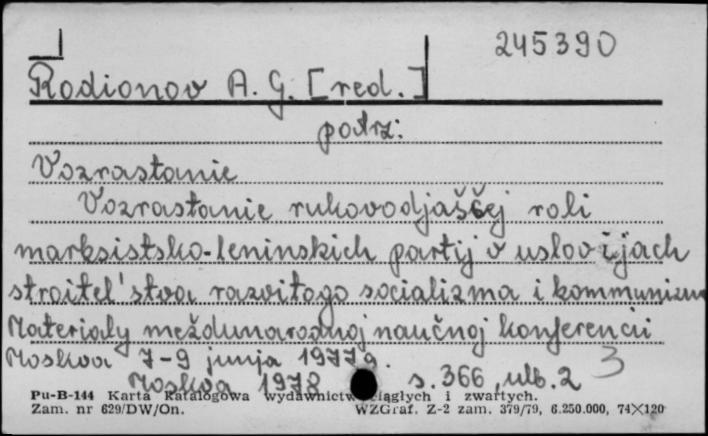 245390
Rodionov A. G. [red.]
patrz:
Vozrastanie
Vozrastanie rukovodjaščej roli
marksistsko-leninskich partij v uslovijach
stroitel'stva razvitogo socializma i kommunizma
Materialy meždunarodnoj naučnoj konferencii
Moskva 7-9 junja 1977g. 3
Moskva 1978 s. 366, ulb. 2
Pu-B-144 Karta katalogowa wydawnictw ciągłych i zwartych.
Zam. nr 629/DW/On. WZGraf. Z-2 zam. 379/79, 6.250.000, 74×120